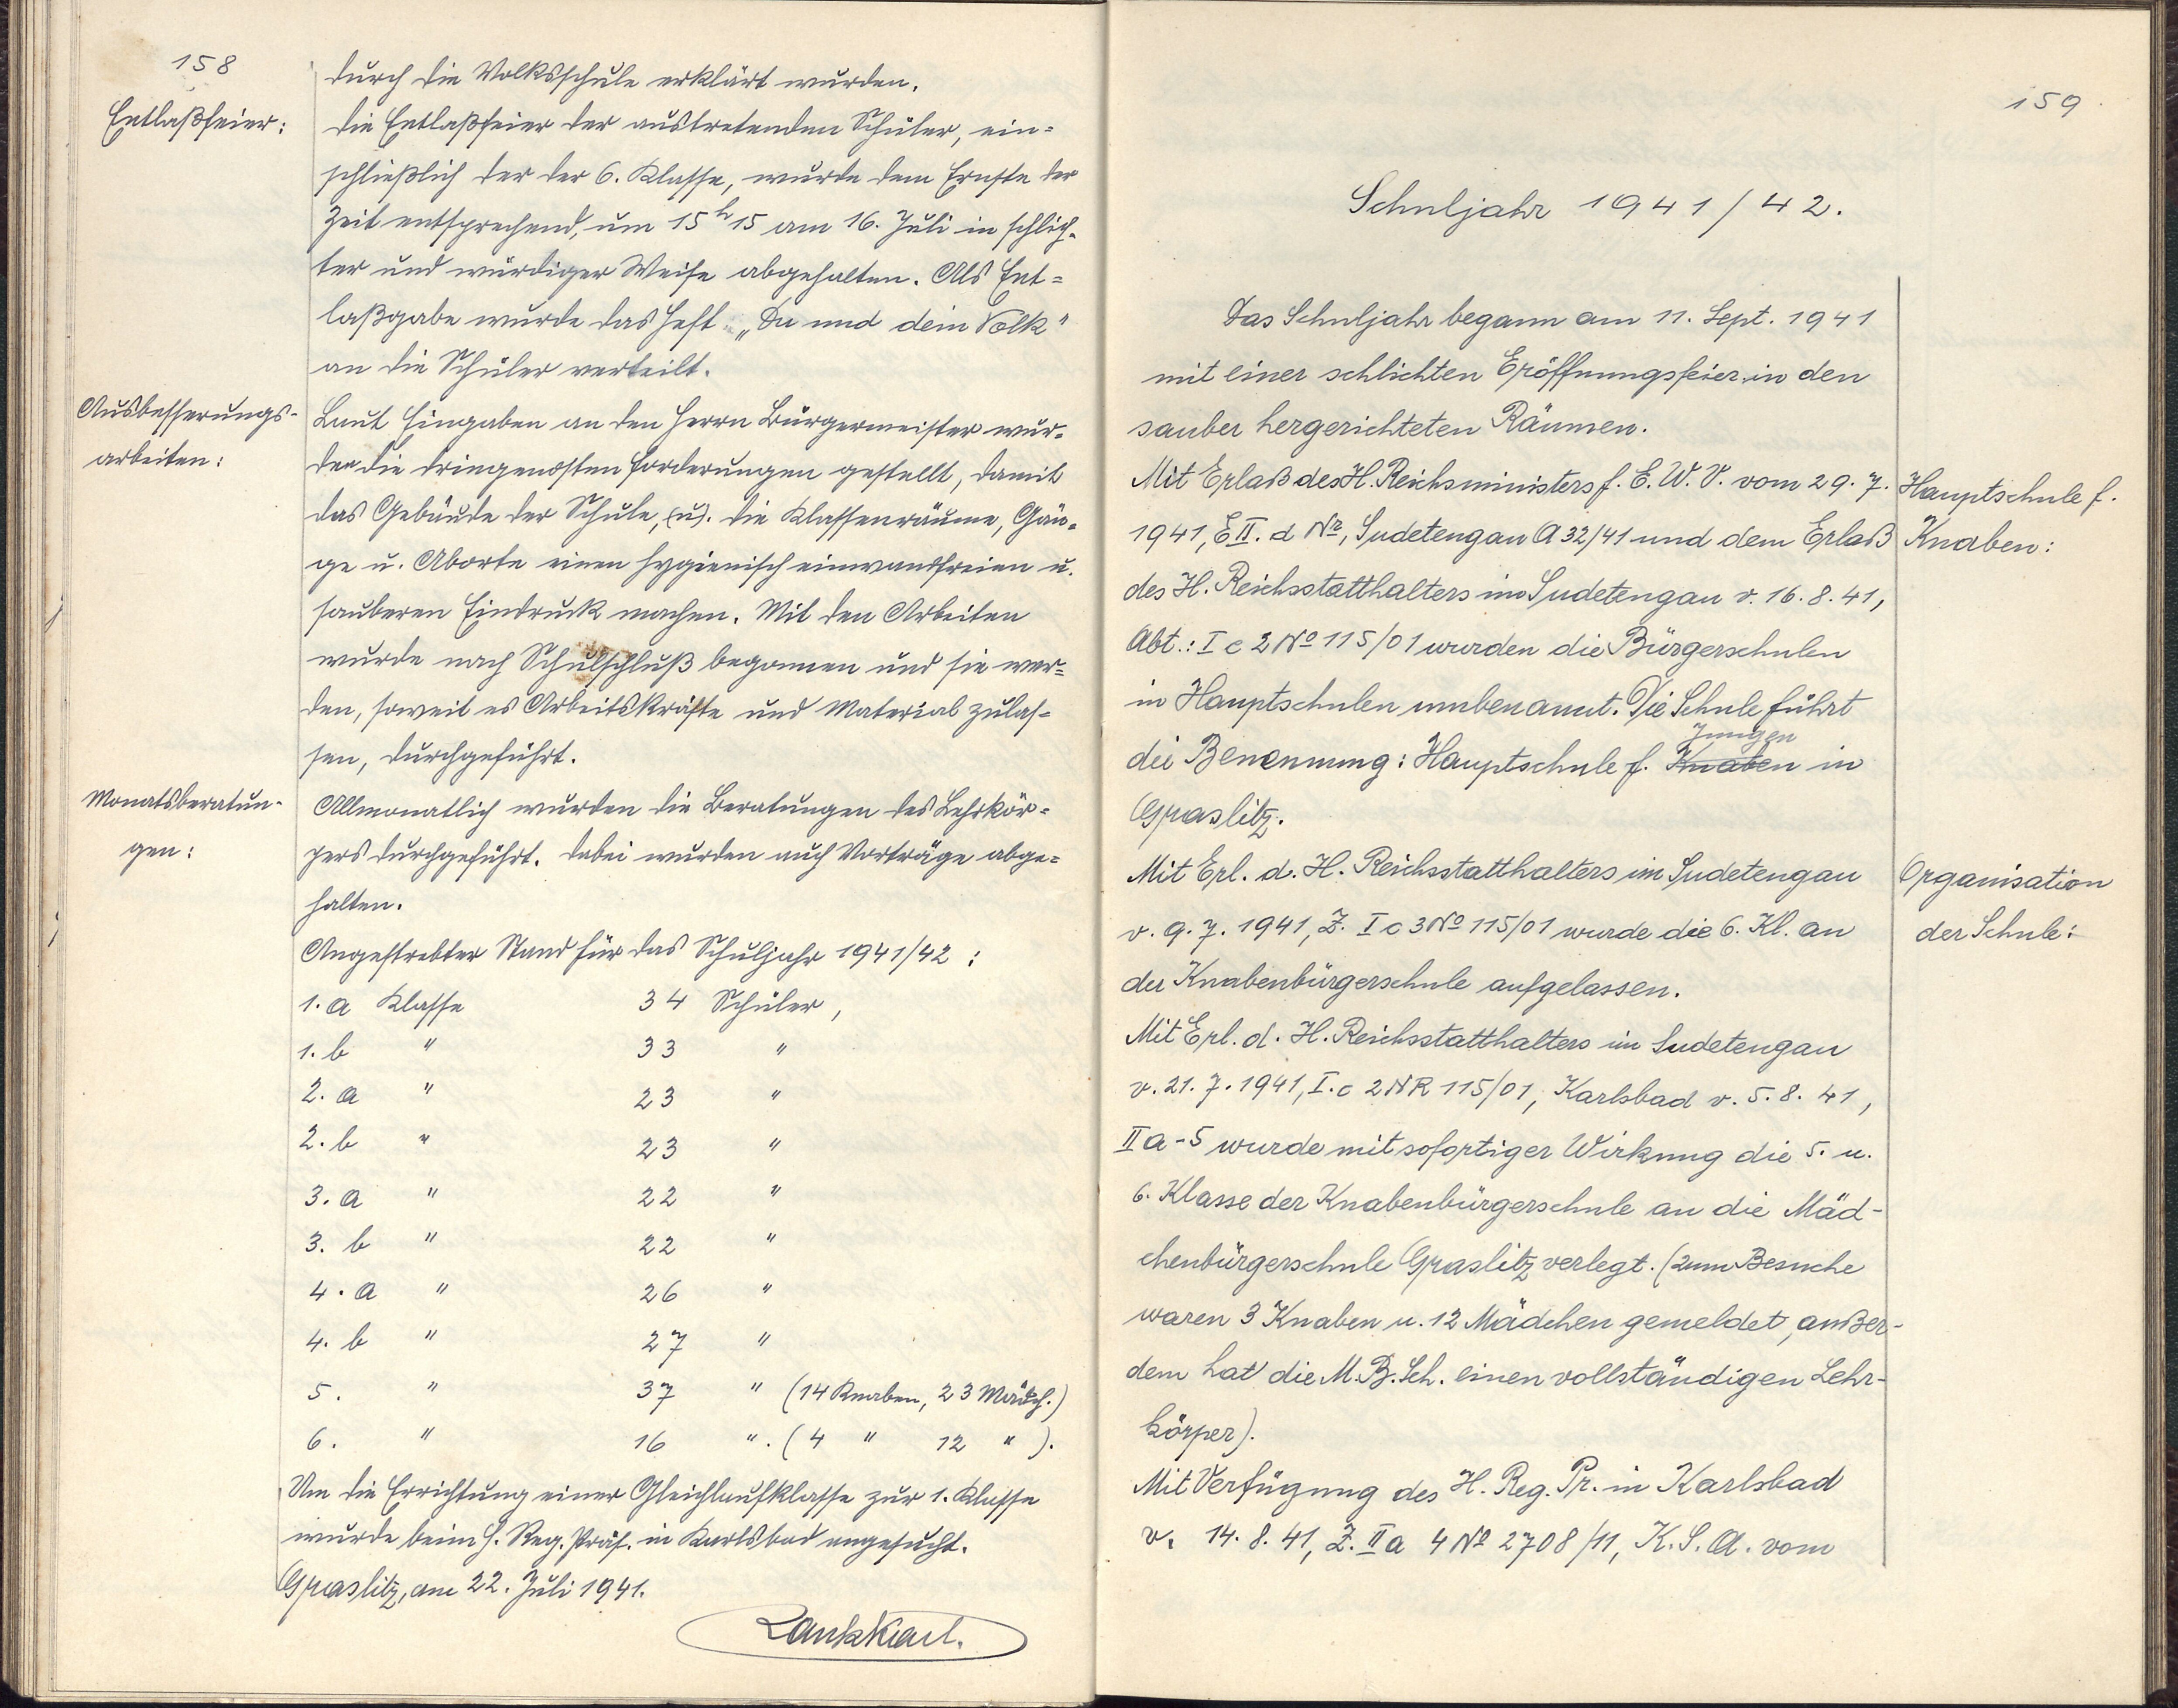 158
durch die Volksschule erklärt wurden.
Entlaßfeier:
Die Entlaßfeier der austretenden Schüler, ein=
schließlich der der 6. Klasse, wurde dem Ernste der
Zeit entsprechend, um 15h 15 am 16. Juli in schlich-
ter und würdiger Weise abgehalten. Als Ent=
laßgabe wurde das Heft „Du und dein Volk"
an die Schüler verteilt.
Ausbesserungs-
arbeiten:
Laut Eingaben an den Herrn Bürgermeister wur-
den die dringendsten Forderungen gestellt, damit
das Gebäude der Schule, (u). die Klassenräume, Gän-
ge u. Aborte einen hygienisch einwandfreien u.
sauberen Eindruck machen. Mit den Arbeiten
wurde nach Schulschluß begonnen und sie wer=
den, soweit es Arbeitskräfte und Material zulas=
sen, durchgeführt.
Monatsberatun-
gen:
Allmonatlich wurden die Beratungen des Lehrkör=
pers durchgeführt. Dabei wurden auch Vorträge abge=
halten.
Angestrebter Stand für das Schuljahr 1941/42:
1. a Klasse 34 Schüler,
1. b " 33 "
2. a " 23 "
2. b " 23 "
3. a " 22 "
3. b " 22 "
4. a " 26 "
4. b " 27 "
5. " 37 " (14 Knaben, 23 Mädch.)
6. " 16 ". (4 " 12 ").
Um die Errichtung einer Gleichlaufklasse zur 1. Klasse
wurde beim H. Reg. Präs. in Karlsbad angesucht.
Graslitz, am 22. Juli 1941.
Lank Karl.
159
Schuljahr 1941/42.
Das Schuljahr begann am 11. Sept. 1941
mit einer schlichten Eröffnungsfeier in den
sauber hergerichteten Räumen.
Hauptschule f.
Knaben:
Mit Erlaß des H. Reichsministers f. E. W. V. vom 29. 7.
1941, E II. d No, Sudetengau A 32/41 und dem Erlaß
des H. Reichsstatthalters im Sudetengau v. 16. 8. 41,
Abt.: I c 2 No 115/01 wurden die Bürgerschulen
in Hauptschulen umbenannt. Die Schule führt
Jungen
die Benennung: Hauptschule f. Knaben in
Graslitz.
Organisation
der Schule:
Mit Erl. d. H. Reichsstatthalters im Sudetengau
v. 9. 7. 1941, Z. I c 3 No 115/01 wurde die 6. Kl. an
der Knabenbürgerschule aufgelassen.
Mit Erl. d. H. Reichsstatthalters im Sudetengau
v. 21. 7. 1941, I. c 2 NR 115/01, Karlsbad v. 5. 8. 41,
II a-5 wurde mit sofortiger Wirkung die 5. u.
6. Klasse der Knabenbürgerschule an die Mäd-
chenbürgerschule Graslitz verlegt. (zum Besuche
waren 3 Knaben u. 12 Mädchen gemeldet, außer-
dem hat die M. B. Sch. einen vollständigen Lehr-
körper).
Mit Verfügung des H. Reg. Pr. in Karlsbad
v. 14. 8. 41, Z. II a 4 No 2708/11, K. S. A. vom